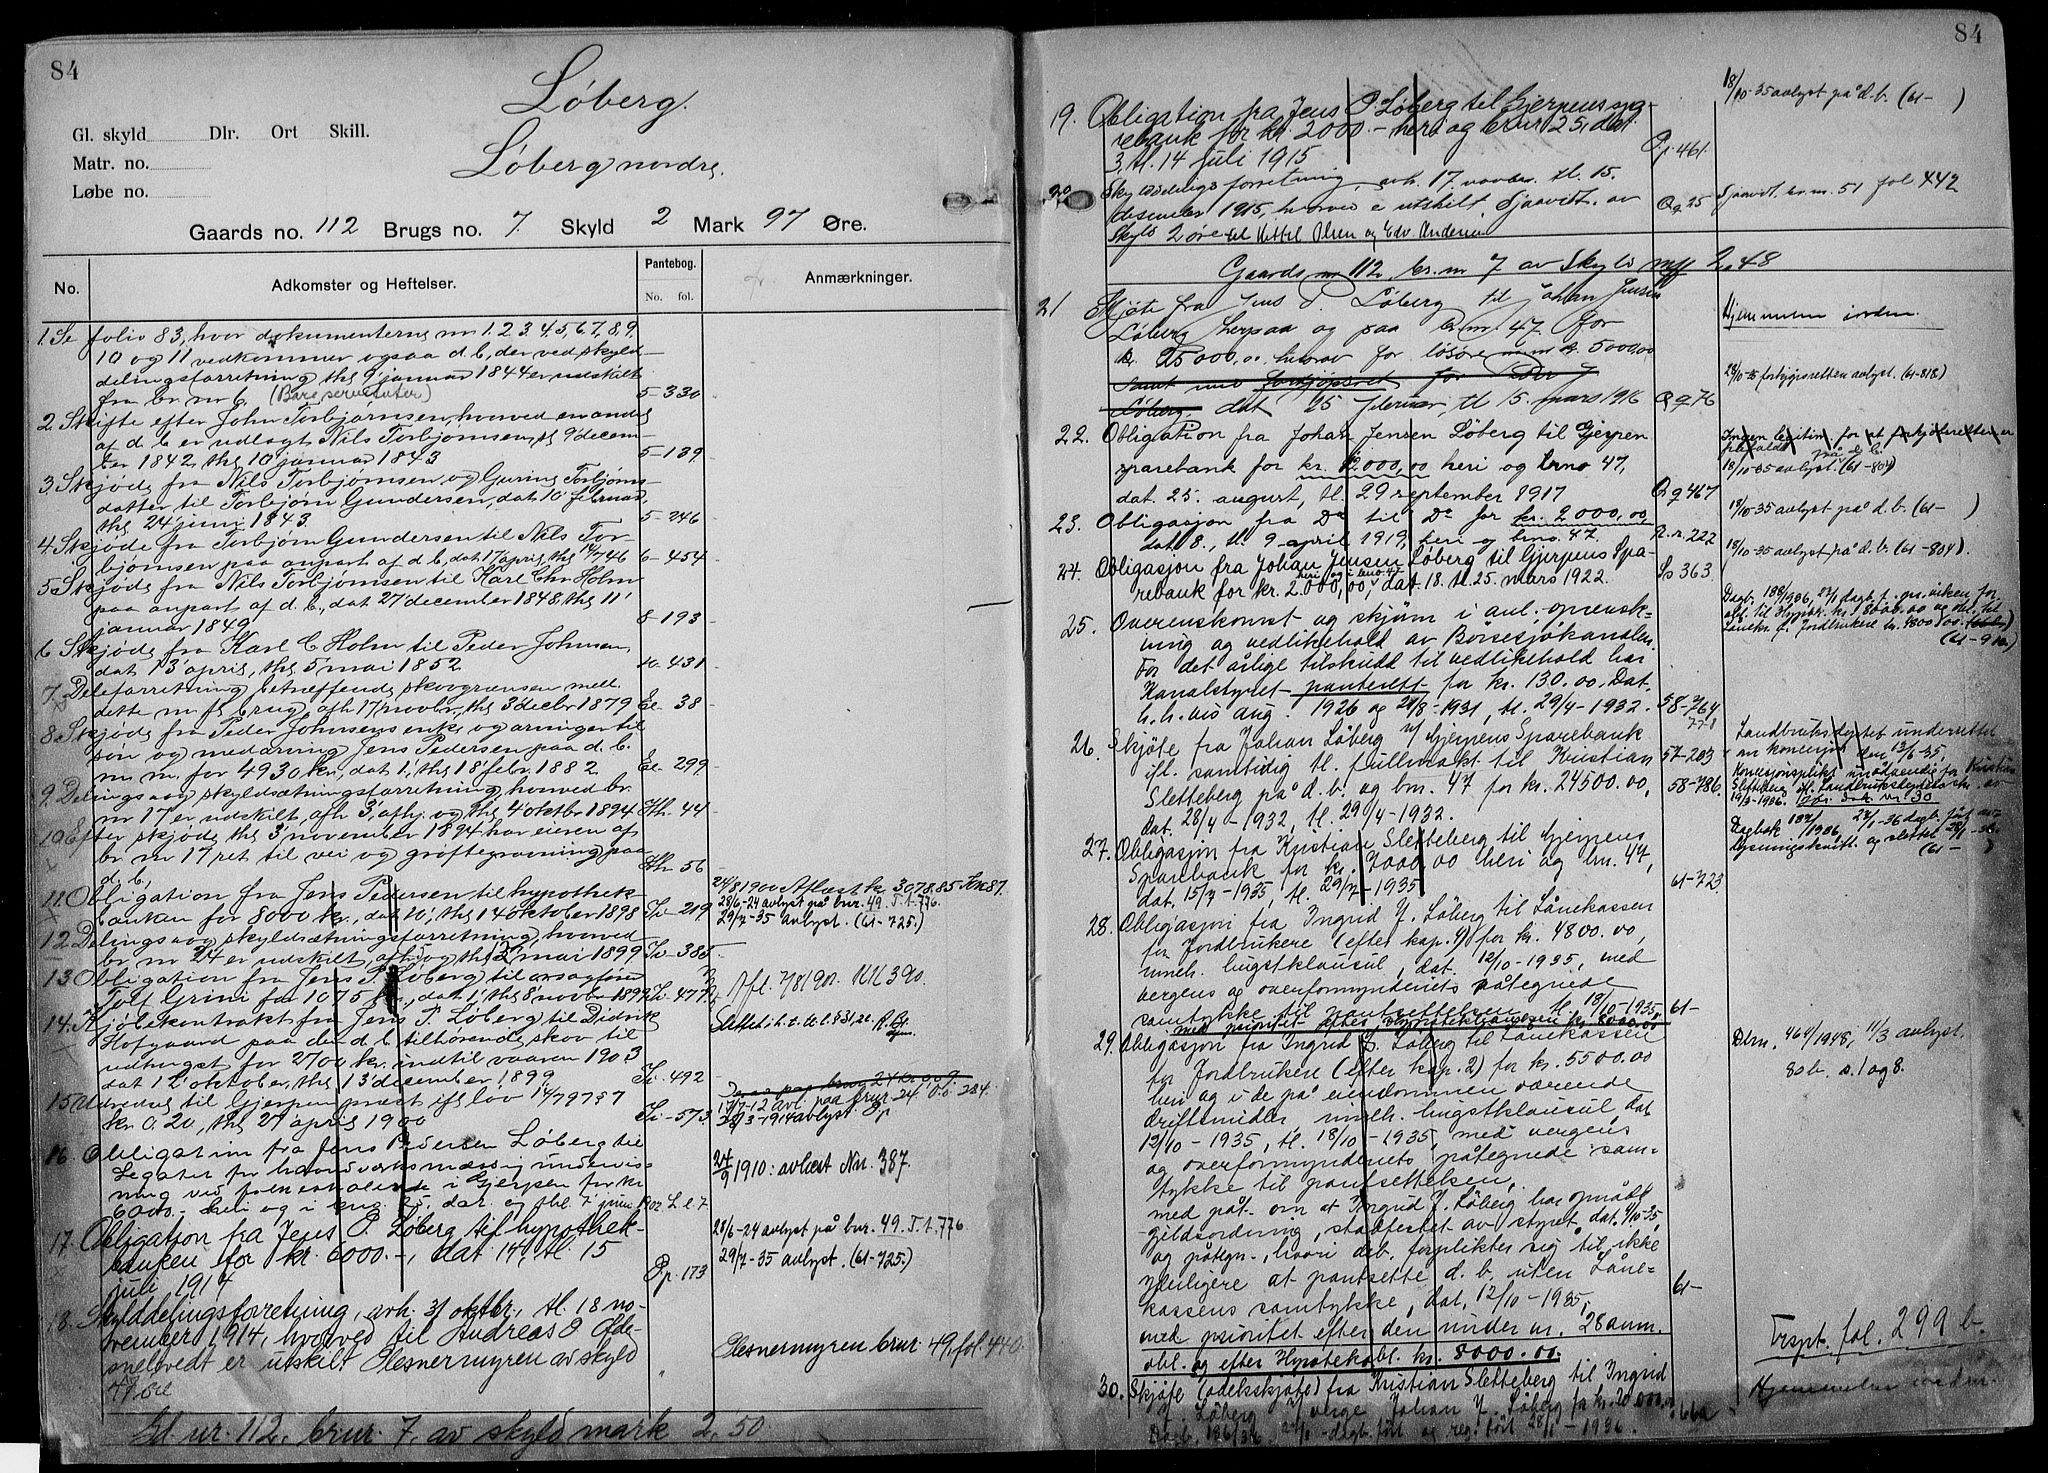 84
Løberg.
Gl. skyld Dlr. Ort Skill.
Matr. no.
Løberg nordre.
Løbe no.
Gaards no. 112 Brugs no. 7 Skyld 2 Mark 97 Øre.
No. Adkomster og Heftelser. Pantebog. No. fol. Anmærkninger.
1. Se folio 83, hvor dokumenterne nr 1, 2, 3, 4, 5, 6, 7, 8, 9,
10 og 11 vedkommer ogsaa d. b., der ved skyld-
delingsforretning thl 9 januar 1844 er udskilt
fra br. nr 6. (Bare servitutter) 5-330
2. Skifte efter John Torbjørnsen, hvorved en andel
af d. b. er udlagt Nils Torbjørnsen, 9 decem-
ber 1842, thl 10 januar 1843 5-139
3. Skjøde fra Nils Torbjørnsen og Guring Torbjørns-
datter til Torbjørn Gundersen, dat. 10 februar,
thl 24 juni 1843. 5-246
4. Skjøde fra Torbjørn Gundersen til Nils Tor-
bjørnsen paa anpart af d. b., dat. 17 april, thl 14/7 46 6-454
5. Skjøde fra Nils Torbjørnsen til Karl Chr Holm
paa anpart af d. b., dat 27 december 1848, thl 11
januar 1849 8-193
6. Skjøde fra Karl C Holm til Peder Johnsen,
dat 13 april, thl 5 mai 1852 10-431
7. Deleforretning betræffende skovgrænsen mell.
dette m. fl. brug, afh 17 novbr., thl 3 decbr 1879 Ee 38
8. Skjøde fra Peder Johnsens enke og arvinger til
søn og medarving Jens Pedersen paa d. b.
m. m. for 4930 kr., dat 1, thl 18 febr. 1882 Ee 299
9. Delings og skyldsætningsforretning, hvorved br.
nr 17 er udskilt, afh 3, afhj. og thl 4 oktbr 1894 Hh. 44
10. Efter skjøde, thl 3 november 1894 har eieren af
br nr 17 ret til vei og grøftegravning paa
d. b. Hh 56
11. Obligation fra Jens Pedersen til hypothek-
banken for 8000 kr., dat 10, thl 14 oktober 1898 Ii 219
24/8 1900 Aflæst kr 3078.85
28/6-24 avlyst på bnr. 49. T. 1. 776.
29/7-35 avlyst. (61-725.)
12. Delings og skyldsætningsforretning, hvorved
br nr 24 er udskilt, afh 5 og thl 12 mai 1899 Ii 385
13. Obligation fra Jens P. Løberg til orsagfører
Tolf Grini for 1075 kr., dat 1, thl 8 novbr 1899 Ii 477
Afl. 7/8 190.
14. Kjøbekontrakt fra Jens P. Løberg til Didrik
Hofgaard paa den d. b. tilhørende skov til
udhugst for 2700 kr. indtil vaaren 1903
dat 12 oktober, thl 13 december 1899 Ii. 492
15. Udredsel til Gjerpen præst ifl. lov 14/7 97 § 7
kr 0.20, thl 27 april 1900 Ii-573
17/7-12 avl. paa brnr. 24
16. Obligation fra Jens Pedersen Løberg til
Legatet for haandverksmæssig undervis-
ning ved folkeskolerne i Gjerpen for kr
6000.- heri og i brug 25, dat. og thl. 7 juni 1902 L l. 7
24/9 1910: avlæst Nn. 387.
17. Obligation fra Jens P. Løberg til hypothek-
banken for kr. 6000.-, dat 14, tl. 15
juli 1914 Pp. 173
28/6-24 avlyst på bnr. 49. T. 1. 776
29/7-35 avlyst. (61-725.)
18. Skylddelingsforretning, avh. 31 oktbr., tl. 18 no-
vember 1914, hvorved til Andreas O Ofde-
snelvedt er utskilt Plesnermyren av skyld
47 øre "
Plesnermyren brnr. 49, fol. 440.
Gd nr. 112, brnr. 7, av skyld mark 2.50.
84
19. Obligation fra Jens P. Løberg til Gjerpens spa-
rebank for kr. 2000.- heri og brnr 25, dat.
3, tl. 14 juli 1915 Pp. 461
18/10-35 avlyst på d. b. (61- )
20. Skylddelingsforretning, avh. 17. novbr. tl. 15.
desember 1915, hvorved er utskilt Sjaavidt. av
skyld 2 øre til Kittil Olsen og Edv. Andersen Qq 25
Sjaavidt br. nr. 51 fol 442
Gaards nr 112, br. nr 7 av skyld mk 2.48
21 Skjøte fra Jens P. Løberg til Johan Jensen
Løberg herpaa og paa br. nr. 47 for
kr. 25000,00 hvorav for løsøre kr. 5000,00
samt med forkjøpsret for Peder J
Løberg, dat 25 februar, tl 15. mars 1916 Qq 76
Hjemmelen iorden.
28/10-35 forkjøpsretten avlyst. (61-818)
22. Obligation fra Johan Jensen Løberg til Gjerpen
sparebank for kr. 12000,00 heri og brno 47,
dat. 25. august, tl. 29 september 1917 Qq 467
18/10-35 avlyst. (61-804)
23. Obligasjon fra Do til Do for kr. 2000,00
dat 8., tl. 9 april 1919, heri og brno. 47. R. r. 222
18/10-35 avlyst på d. b. (61- )
24. Obligasjon fra Johan Jensen Løberg til Gjerpens Spa-
rebank for kr. 2.000,00, heri og i brno. 47 dat. 18. tl. 25. mars 1922. Ss 363
18/10-35 avlyst på d. br. (61-804).
25. Overenskomst og skjønn i anl. opprensk-
ning og vedlikehold av Børsesjøkanalen.
For det årlige tilskudd til vedlikehold har
Kanalstyret panterett for kr. 130.00. Dat.
h. h. vis aug. 1926 og 21/8-1931, tl. 29/4-1932. 58-764
771
26. Skjøte fra Johan Løberg v/ Gjerpens Sparebank
ifl. samtidig tl. fullmakt til Kristian
Sletteberg på d. b. og bnr. 47 for kr. 24500.00,
Dat. 28/4-1932, tl. 29/4-1932. 57-203
58-786.
27. Obligasjon fra Kristian Sletteberg til Gjerpens
Sparebank for kr. 7000.00 heri og bnr. 47,
dat. 15/7-1935, tl. 29/7-1935 61-723
28. Obligasjon fra Ingrid J. Løberg til Lånekassen
for Jordbrukere (efter kap. 4) for kr. 4800.00,
innh. hugstklausul, dat. 12/10-1935, med
vergens og overformynderiets påtegnede
samtykke til pantsettelsen, tl. 18/10-1935, 61-
med prioritet efter hypotekbanken kr. 8000.00
29. Obligasjon fra Ingrid J. Løberg til Lånekassen
for Jordbrukere (efter kap. 2) for kr. 5500.00
heri og i de på eiendommen værende
driftsmidler innh. hugstklausul dat
12/10-1935, tl. 18/10-1935, med vergens
og overformynderiets påtegnede sam-
tykke til pantsettelsen,
med påt. om at Ingrid J. Løberg har opnådd
gjeldsordning, stadfestet av styret, dat. 9/10-35,
og påtegn., hvori deb. forplikter sig til ikke
yderligere at pantsette d. b. uten Låne-
kassens samtykke, dat. 12/10-1935, 61-
med prioritet efter den under nr. 28 anm.
obl. og efter Hypotekobl. kr. 8000.00.
Dbnr. 464/1948, 11/3 avlyst.
80b. s. 1 og 8.
30. Skjøte (odelsskjøte) fra Kristian Sletteberg til Ingrid
J. Løberg v/ verge Johan J. Løberg for kr. 20 000.00
Dagb. 186/36
Hjemmelen iorden.
Trspt. fol. 299 b.